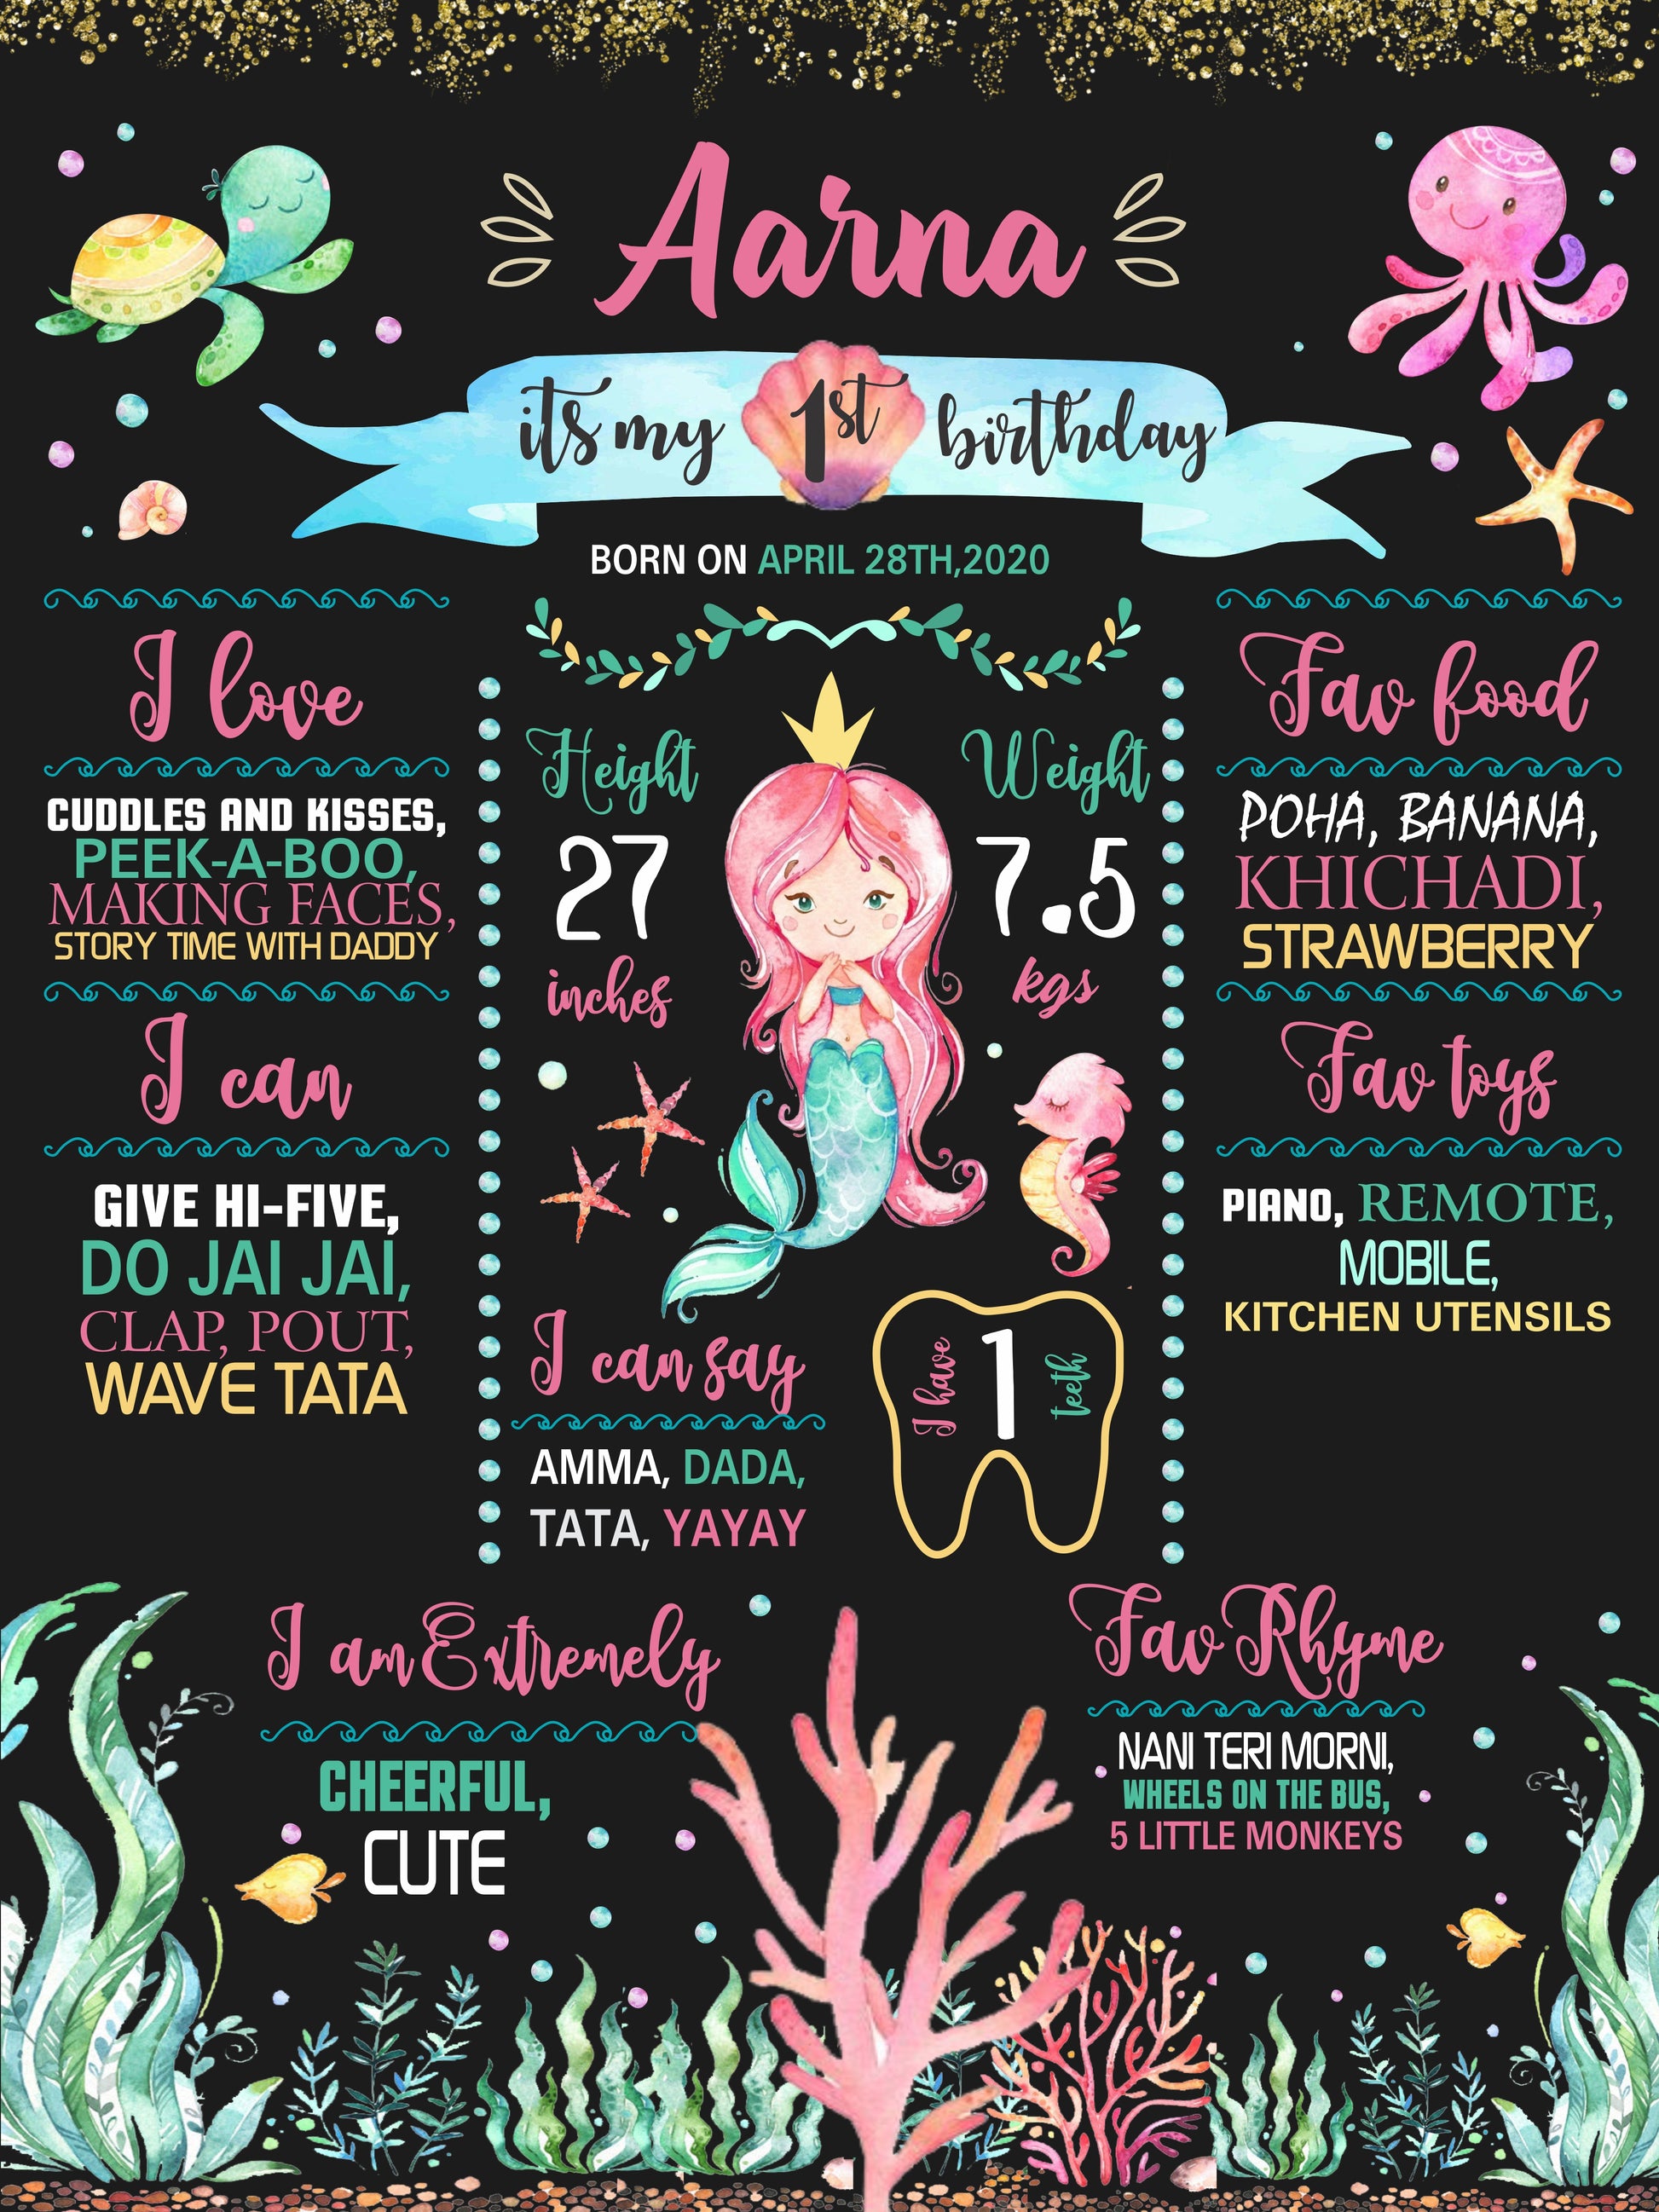 Aarna
its my 1st birthday
BORN ON APRIL 28TH,2020
I love
CUDDLES AND KISSES,
PEEK-A-BOO,
MAKING FACES,
STORY TIME WITH DADDY
I can
GIVE HI-FIVE,
DO JAI JAI,
CLAP, POUT,
WAVE TATA
Height
27
inches
Weight
7.5
kgs
I can say
AMMA, DADA,
TATA, YAYAY
I have
1
teeth
Fav food
POHA, BANANA,
KHICHADI,
STRAWBERRY
Fav toys
PIANO, REMOTE,
MOBILE,
KITCHEN UTENSILS
I am Extremely
CHEERFUL,
CUTE
Fav Rhyme
NANI TERI MORNI,
WHEELS ON THE BUS,
5 LITTLE MONKEYS